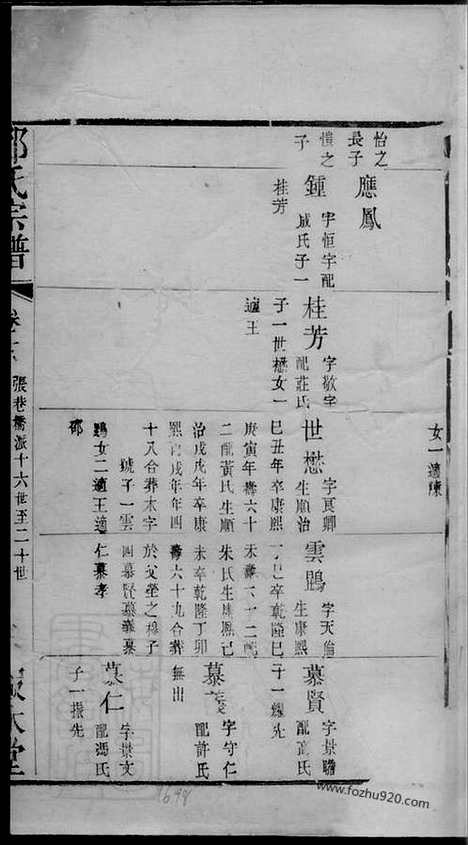 女一適陳
怡之
長子
應鳳
愷之
子
鍾
字恒宇配
成氏子一
桂芳
桂芳
字敬宇
配莊氏
子一世懋女一
適王
世懋
字貢卿
生順治
己丑年卒康熙
庚寅年壽六十
二配黃氏生順
治戊戌年卒康
熙 戌年年四
十八合葬木字
號子一雲
鵾女二適王適
邵
雲鵾
字天倫
生康熙
丁巳卒乾隆己
未壽六十二配
朱氏生康熙己
未卒乾隆丁卯
壽六十九合葬
於父塋之穆子
四慕賢慕義慕
仁慕孝
慕賢
字景瞻
配高氏
子一耀先
慕義
字守仁
配許氏
無出
慕仁
字景文
配馮氏
子一振先
氏宗譜
張巷橋派十六世至二十世
堂
1698
www.fozhu920.com